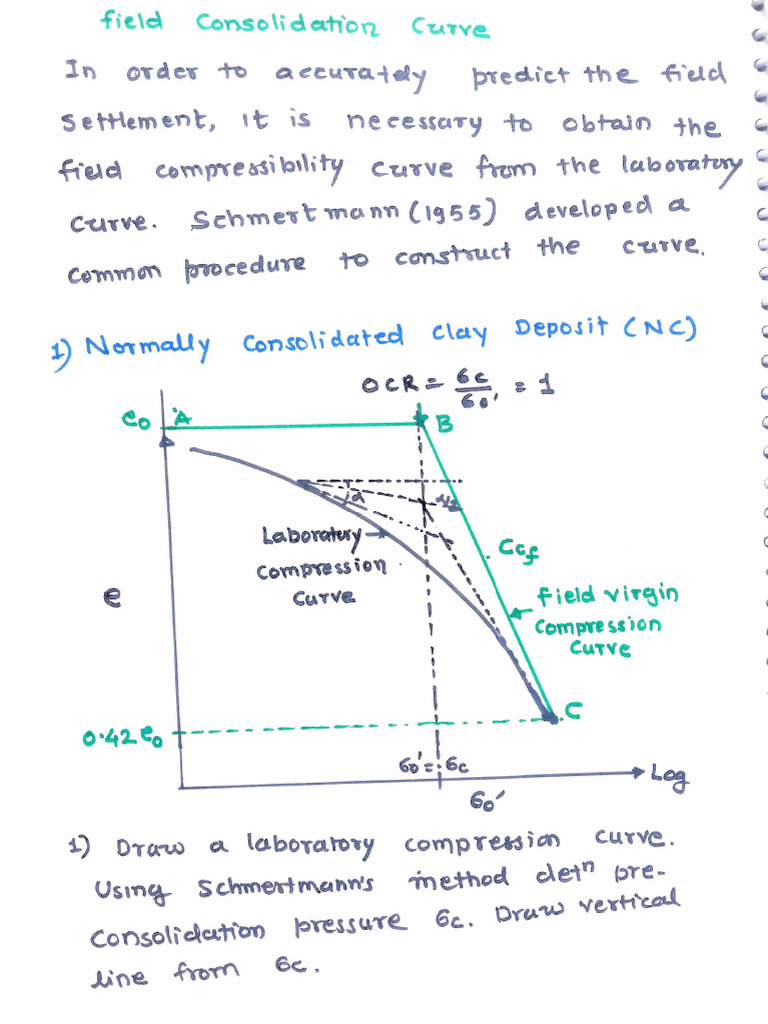 field Consolidation Curve
In order to accurately predict the field
Settlement, it is necessary to obtain the
field compressibility curve from the laboratory
curve. Schmertmann (1955) developed a
common procedure to construct the curve.
1) Normally Consolidated Clay Deposit (NC)
OCR = σc / σo' = 1
eo A
B
α
α/2
Laboratory
Compression
Curve
Ccf
e
field virgin
Compression
Curve
C
0.42 eo
σo' = σc
Log
σo'
1) Draw a laboratory compression curve.
Using Schmertmann's method detⁿ pre-
Consolidation pressure σc. Draw vertical
line from σc.